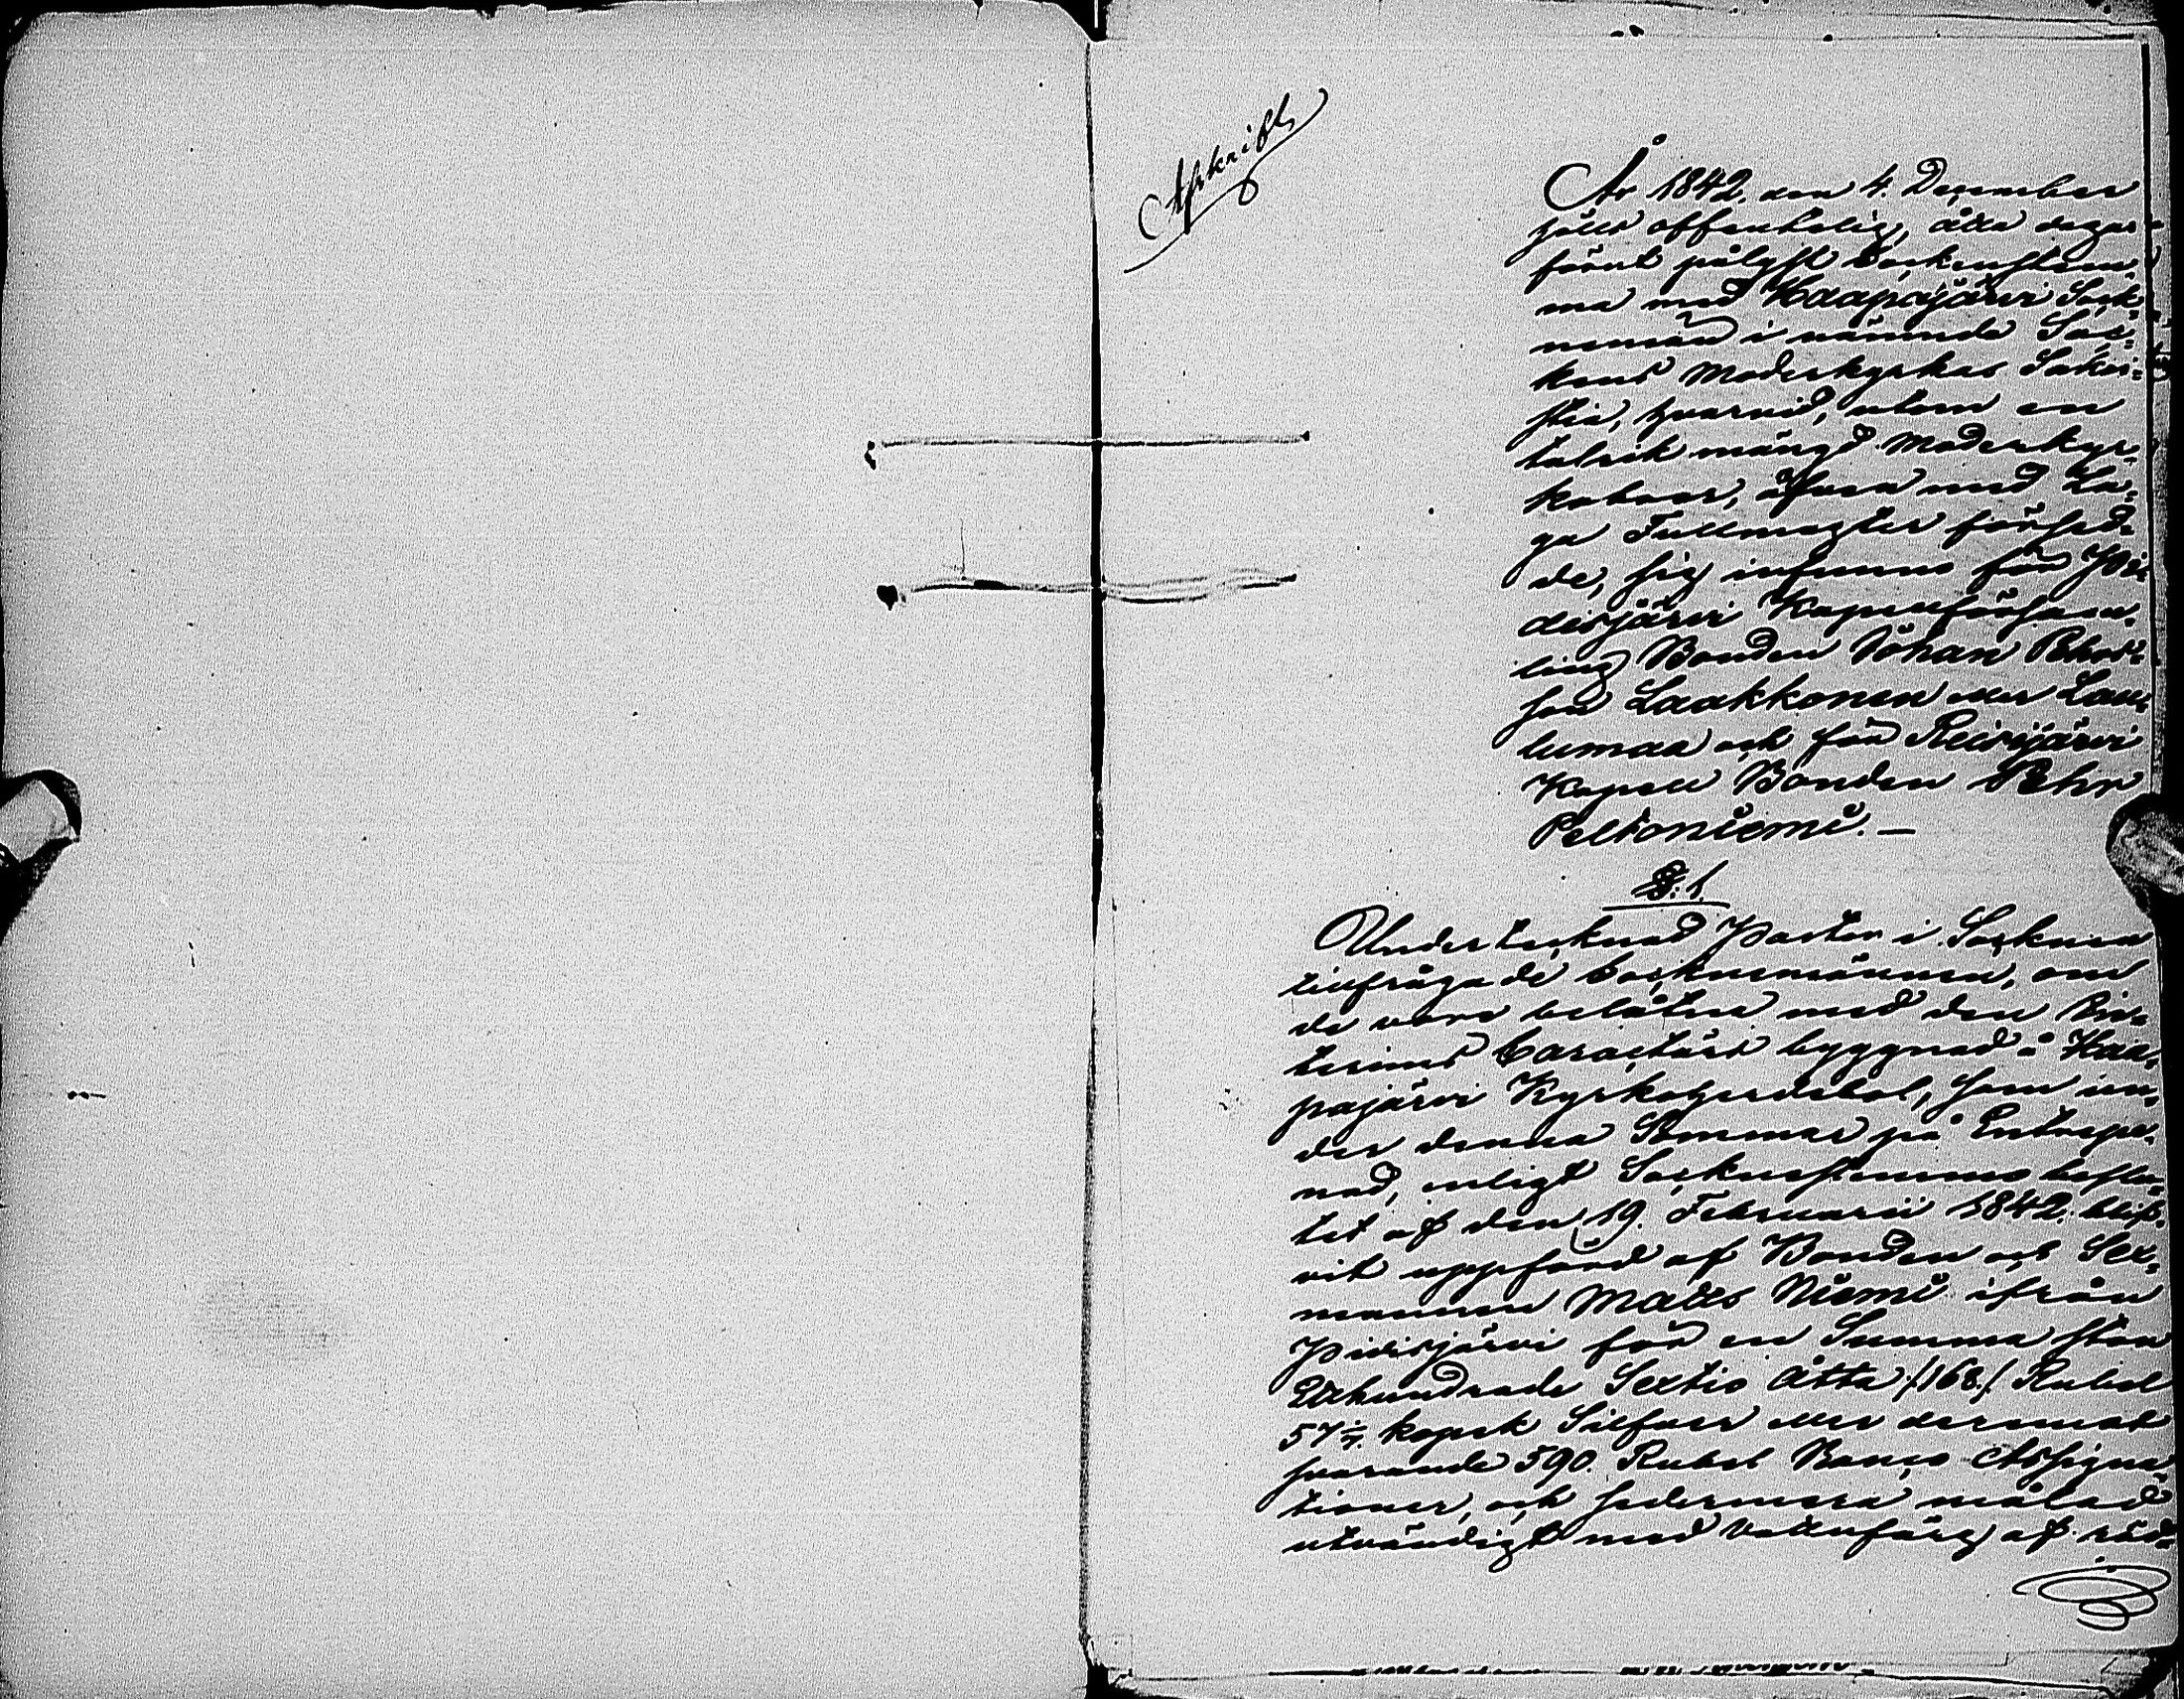 Afskrift
År 1842. den 4. December
hölls offentelig, åtta dagar
förut pålyst Sockenstäm-
ma med Haapajärvi Sock-
nemän i nämnde Soc-
kens Moderkyrkas Sakri-
stia, hvarvid, utom en
talrik mängd Moderkyr-
koboer, äfven med La-
ga Fullmagter försed-
de, sig infunno för Pi-
disjärvi Kapellförsam-
ling Bonden Johan Pehrs-
son Laakkonen eller Lau-
lumaa och för Reisjärvi
Kapell Bonden Pehr
Peltoniemi. —
§. 1.
Undertecknad Pastor i Socknen
tillfrågade Socknemännen, om
de voro belåtne med den Vin-
terins Caractärs byggnad å Haa-
pajärvi Kyrkoherdebol, som un-
der denna Sommar på Entrepe-
nad, enligt Sockenstämmo beslu-
tet af den 19. Februarii 1842. blif-
vit uppförd af Bonden och Sex-
mannen Matts Niemi ifrån
Pidisjärvi för en Summa stor
Etthundrade Sextio åtta /168./ Rubel
57 1/7. kopek Silfver eller deremot
svarande 590. Rubel Banco Assigna-
tioner, och sedermera målad
utvändigt med Vattenfärg af röd-